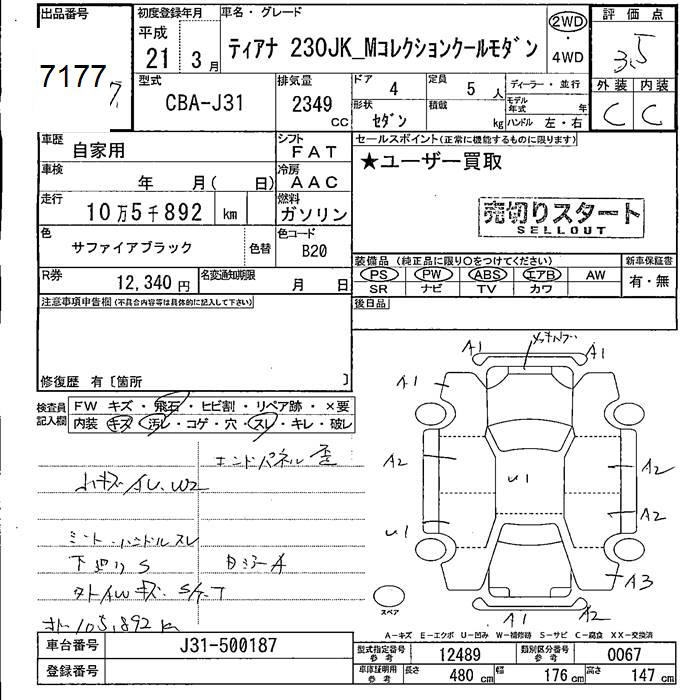 出品番号
7177
初度登録年月
平成
21 3 月
車名・グレード
ティアナ 230JK_Mコレクションクールモダン
2WD
・
4WD
評価点
3.5
外装 内装
C C
型式
CBA-J31
排気量
2349
CC
ドア 4
定員 5 人
形状 セダン
積載 kg
ディーラー・並行
モデル年式 年
ハンドル 左・右
車歴
自家用
シフト
FAT
車検
年 月( 日)
冷房
AAC
走行
10万5千892 km
燃料
ガソリン
色
サファイアブラック
色替
色コード
B20
R券
12,340 円
名変通知期限
月 日
セールスポイント(正常に機能するものに限ります)
★ユーザー買取
売切りスタート
SELLOUT
装備品(純正品に限り○をつけてください)
新車保証書
PS PW ABS エアB AW
SR ナビ TV カワ
有・無
後日品
注意事項申告欄(不具合内容等は具体的に記入して下さい)
修復歴 有〔箇所 〕
検査員
記入欄
FW キズ・飛石・ヒビ割・リペア跡・×要
内装 キズ・汚レ・コゲ・穴・スレ・キレ・破レ
エンドパネル歪
小キズ AU.W2
ミント・ハンドルスレ
下廻りS
タトAWキズ
メーター 105,892 k
A1 A1
A1
A2 A2
U1
A2
U1
A3
A1 A2
スペア
A-キズ E-エクボ U-凹み W-補修跡 S-サビ C-腐食 XX-交換済
車台番号
J31-500187
登録番号
型式指定番号
参考
12489
類別区分番号
参考
0067
車庫証明用
参考
長さ 480 cm 幅 176 cm 高さ 147 cm